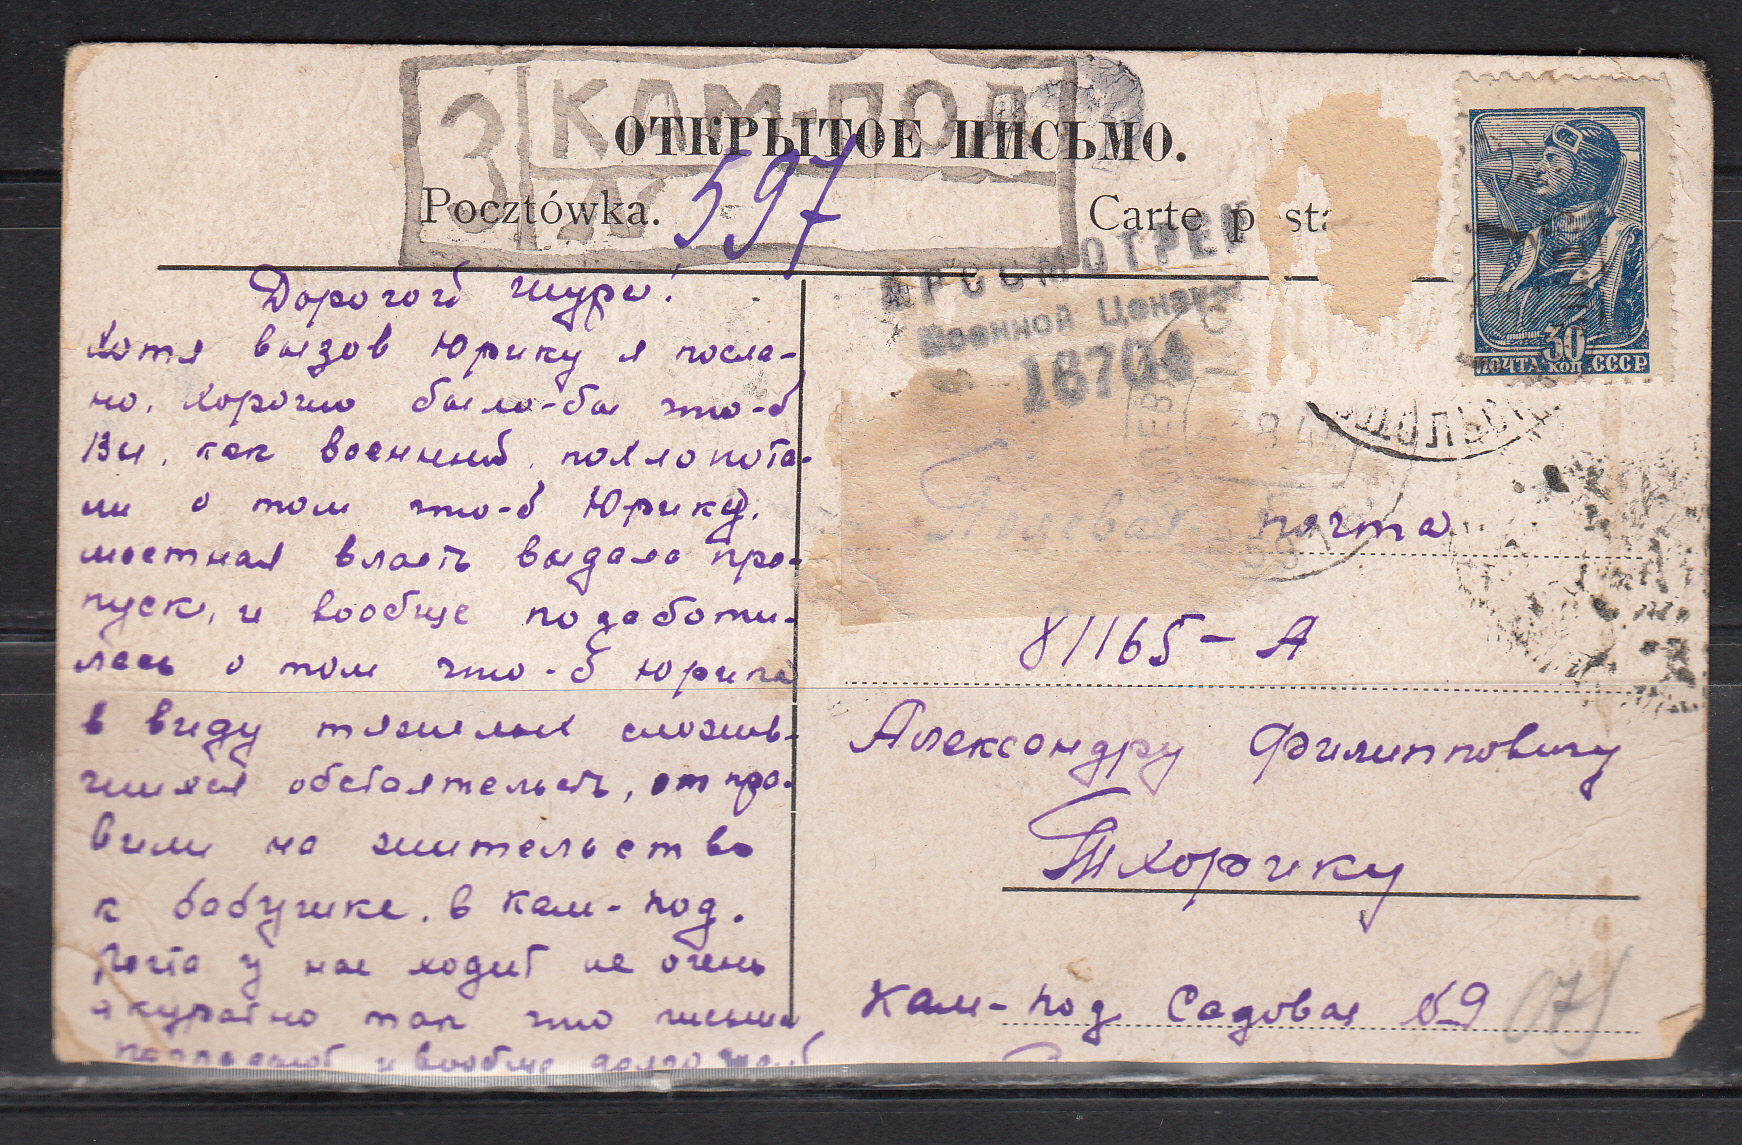 КАМ-ПОД
З
ОТКРЫТОЕ ПИСЬМО.
Pocztówka. 597
Carte p sta
ПРОСМОТРЕН
Военной Цензу
16704
30
ПОЧТА КОП. СССР
Дорогой Шура!
Хотя вызов Юрику я посла-
но, хорошо было-бы что-б
Вы, как военный, похлопота-
ли о том что-б Юрику,
местная власть выдала про-
пуск, и вообще позаботи-
лась о том что-б Юрика
в виду тяжелых сложив-
шихся обстоятельств, отпра-
вили на жительство
к бабушке. в Кам-Под.
Почта у нас ходит не очень
акуратно так что письма
пропадают и вообще долго
Полевая почта
81165-А
Александру Филипповичу
Тхорику
Кам-Под Садовая 69
(7)